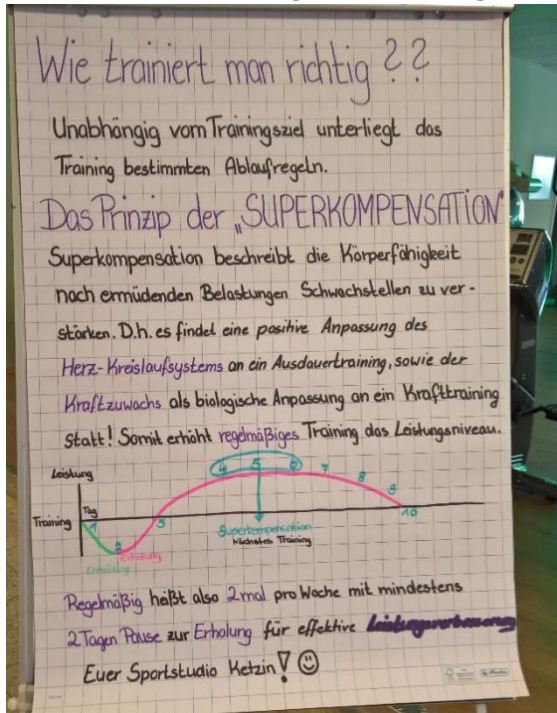 Wie trainiert man richtig ??
Unabhängig vom Trainingsziel unterliegt das
Training bestimmten Ablaufregeln.
Das Prinzip der „SUPERKOMPENSATION"
Superkompensation beschreibt die Körperfähigkeit
nach ermüdenden Belastungen Schwachstellen zu ver-
stärken. D.h. es findet eine positive Anpassung des
Herz-Kreislaufsystems an ein Ausdauertraining, sowie der
Kraftzuwachs als biologische Anpassung an ein Krafttraining
statt! Somit erhöht regelmäßiges Training das Leistungsniveau.
Leistung
4 5 6 7 8 9
Tag
Training 1 3 10
2
Superkompensation
Nächstes Training
Erholung
Ermüdung
Regelmäßig heißt also 2mal pro Woche mit mindestens
2 Tagen Pause zur Erholung für effektive Leistungsverbesserung
Euer Sportstudio Ketzin! ☺